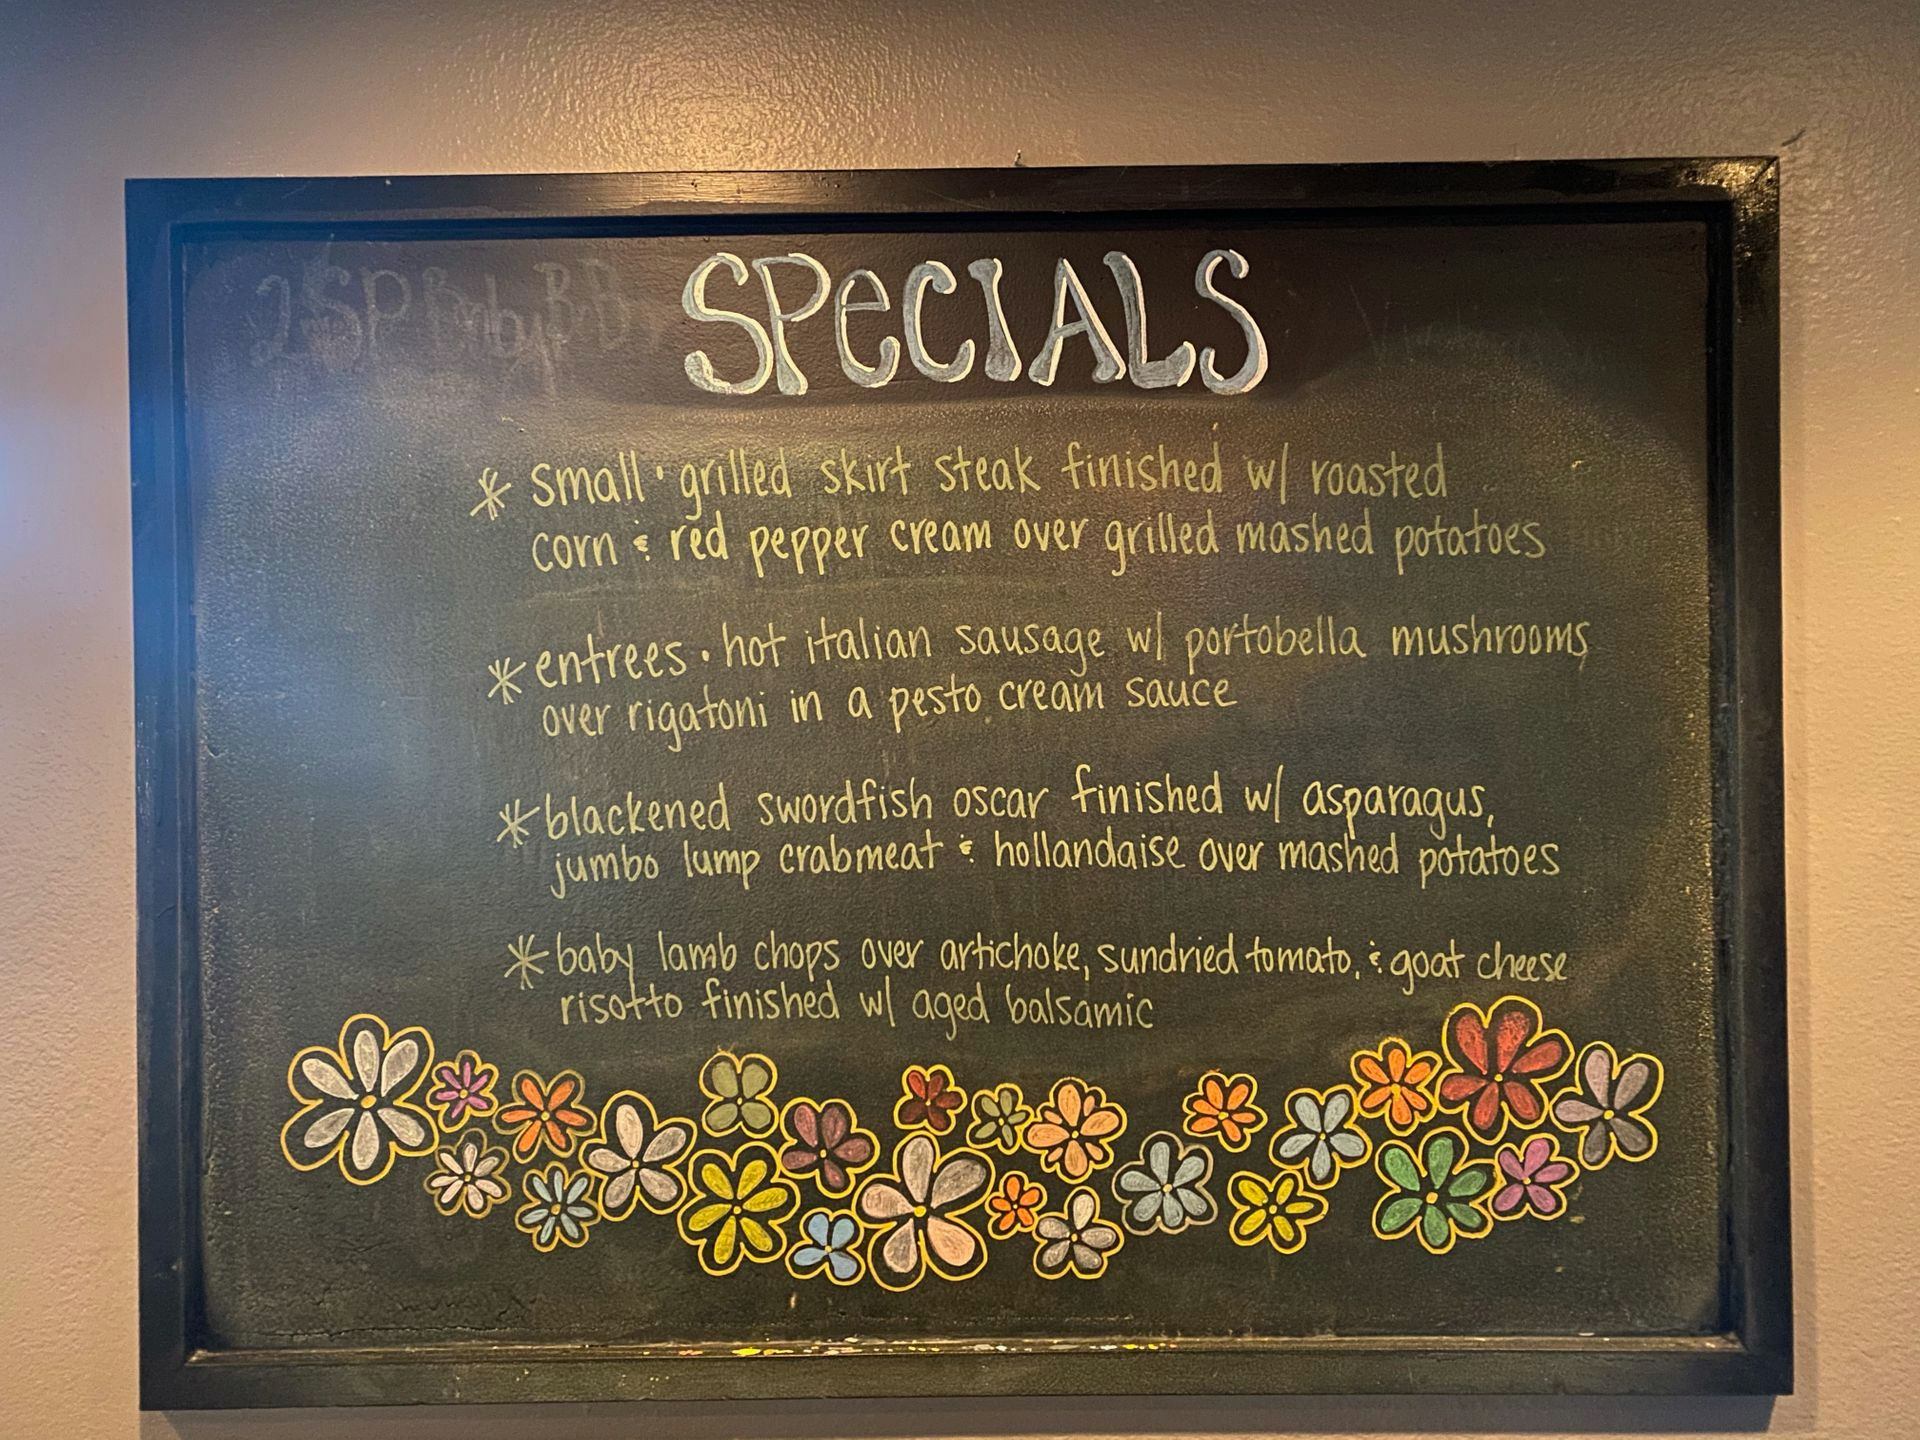 SPeCIALS
* small · grilled skirt steak finished w/ roasted
corn & red pepper cream over grilled mashed potatoes
* entrees · hot italian sausage w/ portobella mushrooms
over rigatoni in a pesto cream sauce
* blackened swordfish oscar finished w/ asparagus,
jumbo lump crabmeat & hollandaise over mashed potatoes
* baby lamb chops over artichoke, sundried tomato, & goat cheese
risotto finished w/ aged balsamic